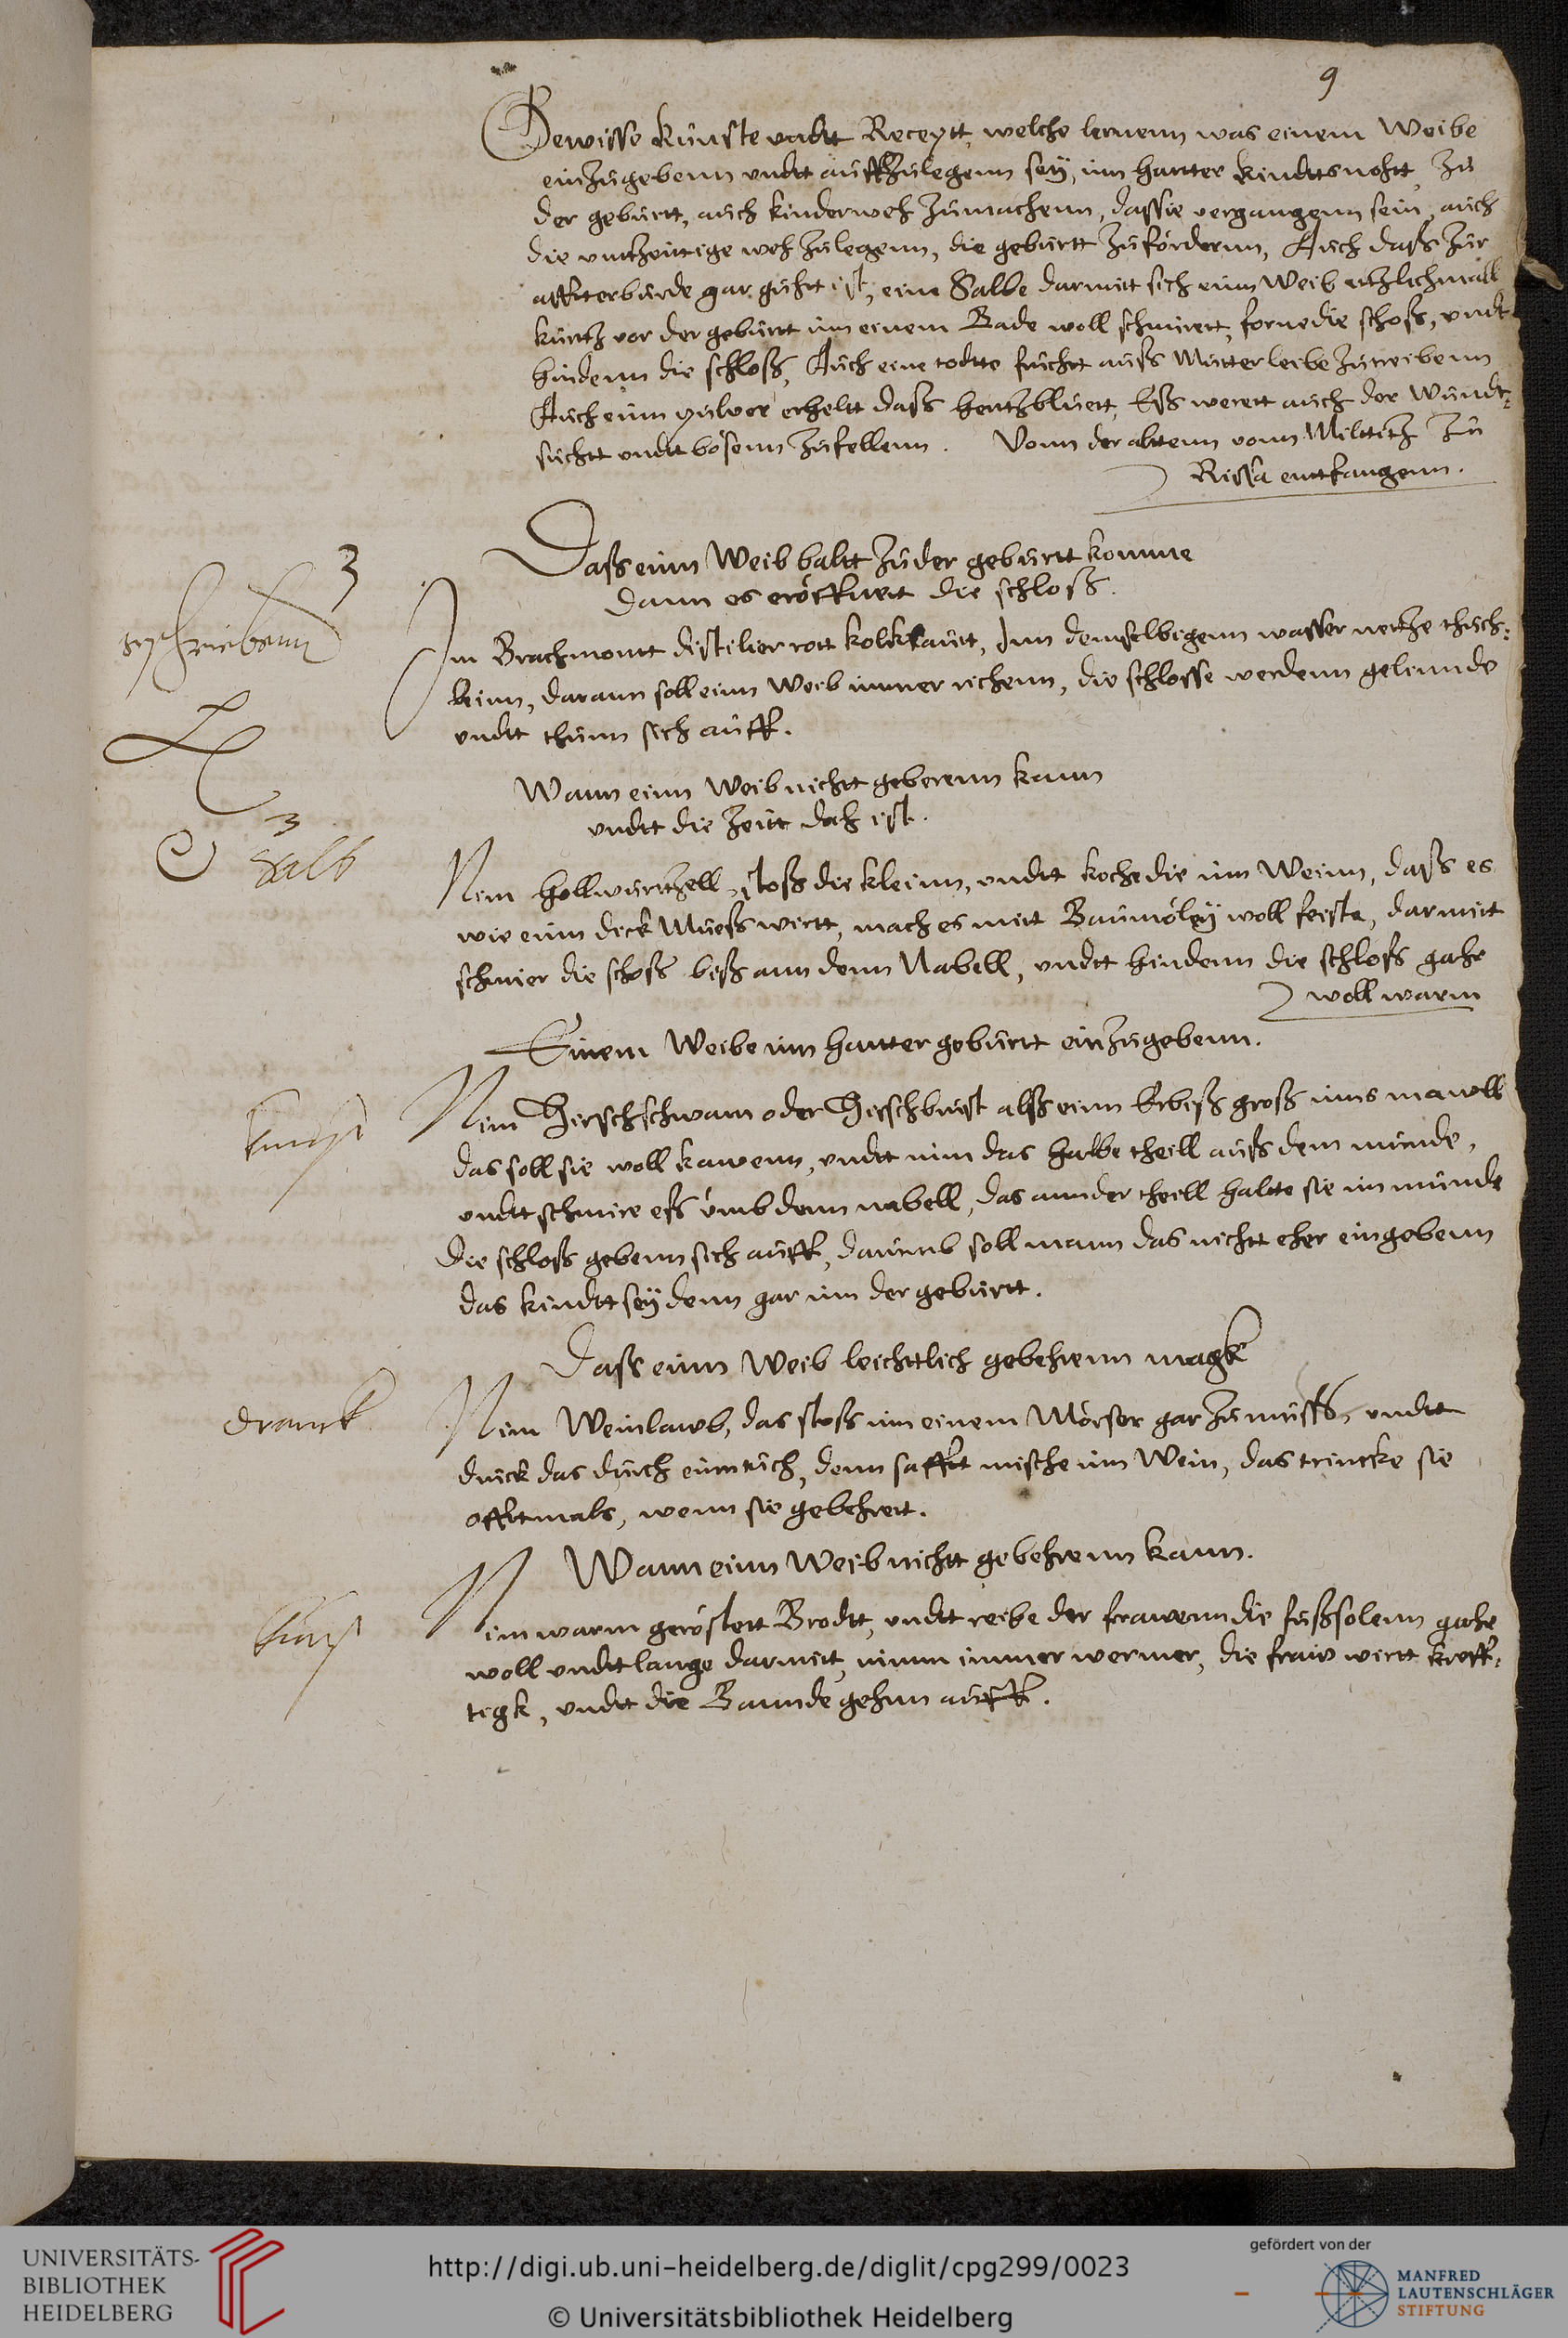 9
Gewisse Künste vndtt Receptt, welche lernenn was einem Weibe
einzugebenn vndtt auffzulegenn seÿ, inn hartter kindttsnohtt, zu
der geburtt, auch kinderweh zumachenn, dassie vergangenn sein, auch
die vnttzeittige weh zulegenn, die geburtt zuförderenn, Auch daß zur
affterbürde gar guht ist, eine Salbe darmitt sich einn Weib etzlichmall
kurtz vor der geburtt inn einem Bade woll schmirett, forne die schoß, vndt
hindenn die schloß, Auch eine todtte fruchtt auß Mutterleibe zutreibenn
Auch einn puluer erheltt daß hertzbluett, Eß werett auch der Wundt-
suchtt vndtt bösenn zufellenn. Vonn der alttenn vonn Milttitz zu
Rissa entfangenn.
Daß einn Weib baltt zu der geburtt komme
dann es eröffnett die schloß.
3
geschriebenn
Im Brachmontt distilier rott kolkrautt, Inn demselbigenn wasser netze thüch-
leinn, darann soll einn Weib immer richenn, die schlosse werdenn gelinnde
vndtt thunn sich auff.
Wann einn Weib nichtt geberenn kann
vndtt die zeitt dah ist.
3
Salb
Nim hollwurtzell, stoß die kleinn, vndtt koche die inn Weinn, daß es
wie einn dick Mueß wirtt, mach es mitt Baumöleÿ woll feiste, darmitt
schmier die schoß biß ann denn Nabell, vndtt hindenn die schloß gahr
woll warm
Einem Weibe inn hartter geburtt einzugebenn.
kunst
Nim Hirschschwam oder Hirschbrust alß einn Erbiß groß inns mawll
das soll sie woll kawenn, vndtt nim das halbe theill auß dem munde,
vndtt schmire eß vmb denn nabell, das annder theill haltte sie im munde
die schloß gebenn sich auff, darumb soll mann das nichtt eher eingebenn
das kindtt seÿ denn gar inn der geburtt.
Daß einn Weib leichttlich gebehrenn magk
dranck
Nim Weinlawb, das stoß inn einem Mörser gar zu mueß, vndtt
druck das durch einn tuch, denn safftt mische inn Wein, das trincke sie
offttmals, wenn sie gebehrett.
Wann einn Weib nichtt gebehrenn kann.
kunst
Nim warm geröstett Brodtt, vndtt reibe der frawenn die fußsolenn gahr
woll vndtt lange darmitt, nimm immer wermer, die fraw wirtt kreff-
tigk, vndtt die Bannde gehnn auff.
UNIVERSITÄTS-
BIBLIOTHEK
HEIDELBERG
http://digi.ub.uni-heidelberg.de/diglit/cpg299/0023
© Universitätsbibliothek Heidelberg
gefördert von der
MANFRED
LAUTENSCHLÄGER
STIFTUNG